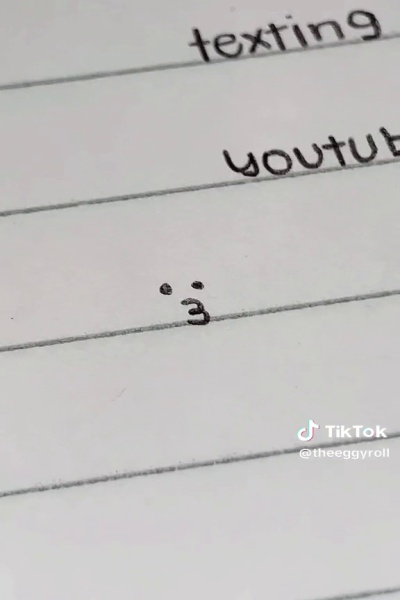 texting
youtub
:3
TikTok
@theeggyroll